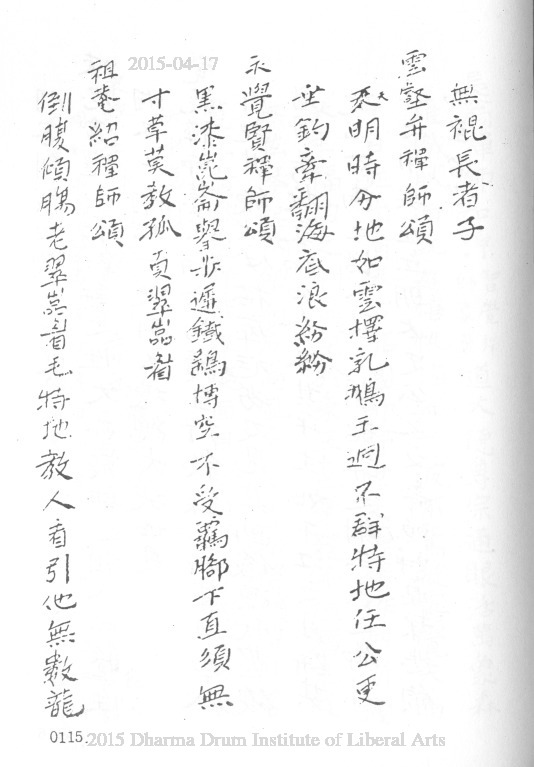 無裩長者子
雲壑弁禪師頌
明時分地如雲擇乳鵝王迥不群特地任公更
垂鈎牽翻海底浪紛紛
永覺賢禪師頌
黑漆崑崙擧步遲鐵鷂搏空不受羈腳下直須無
寸草莫教孤負翠嵓眉
祖菴紹禪師頌
倒腹傾腸老翠嵓眉毛特地教人看引他無數龍
0115
2015-04-17
2015 Dharma Drum Institute of Liberal Arts